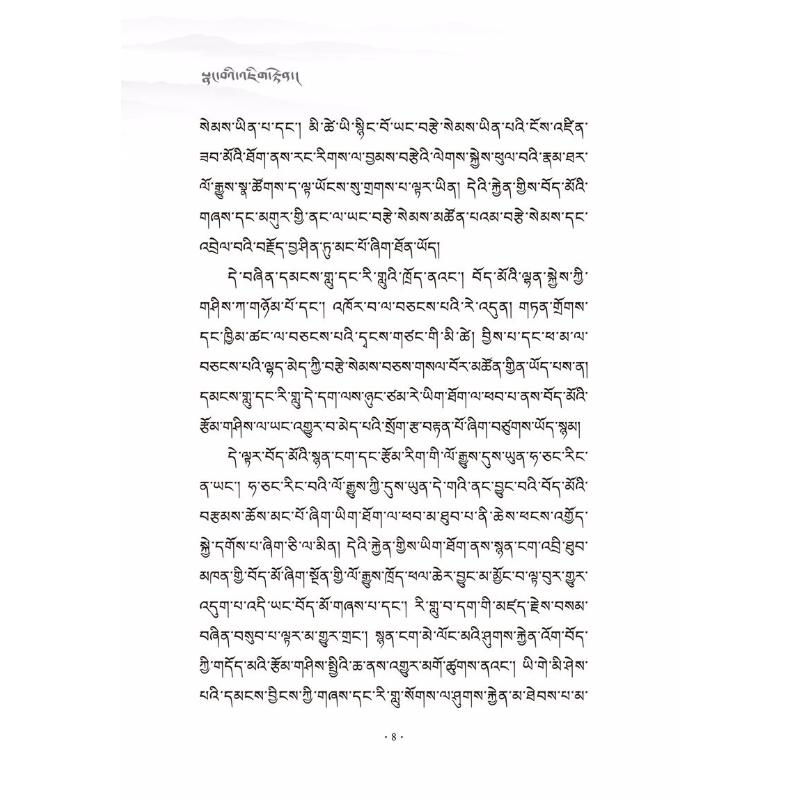 ལྷ།།བའི།འཇིག།རྟེན།།
སེམས་ཡིན་པ་དང་། མི་ཚེ་ཡི་སྙིང་པོ་ཡང་བརྩེ་སེམས་ཡིན་པའི་ངོས་འཛིན་
ཟབ་མོའི་ཐོག་ནས་རང་རིགས་ལ་བྱམས་བརྩེའི་ལེགས་སྐྱེས་ཕུལ་བའི་རྣམ་ཐར་
ལོ་རྒྱུས་སྣ་ཚོགས་ད་ལྟ་ཡོངས་སུ་གྲགས་པ་ལྟར་ཡིན། དེའི་རྐྱེན་གྱིས་བོད་མོའི་
གཞས་དང་མགུར་གྱི་ནང་ལ་ཡང་བརྩེ་སེམས་མཚོན་པའམ་བརྩེ་སེམས་དང་
འབྲེལ་བའི་བརྗོད་བྱ་ཤིན་ཏུ་མང་པོ་ཞིག་ཐོན་ཡོད།
དེ་བཞིན་དམངས་གླུ་དང་རི་གླུའི་ཁྲོད་ནའང་། བོད་མོའི་ལྷན་སྐྱེས་ཀྱི་
གཤིས་ཀ་གཉོམ་པོ་དང་། འཁོར་བ་ལ་བཅངས་པའི་རེ་འདུན། གཏན་གྲོགས་
དང་ཁྱིམ་ཚང་ལ་བཅངས་པའི་དྭངས་གཙང་གི་མི་ཚེ། བྱིས་པ་དང་ཕ་མ་ལ་
བཅངས་པའི་ལྷད་མེད་ཀྱི་བརྩེ་སེམས་བཅས་གསལ་བོར་མཚོན་གྱིན་ཡོད་པས་ན།
དམངས་གླུ་དང་རི་གླུ་དེ་དག་ལས་ཉུང་ཙམ་རེ་ཡིག་ཐོག་ལ་ཕབ་པ་ནས་བོད་མོའི་
རྩོམ་གཤིས་ལ་ཡང་འགྱུར་བ་མེད་པའི་སྲོག་རྩ་བརྟན་པོ་ཞིག་བཙུགས་ཡོད་སྙམ།
དེ་ལྟར་བོད་མོའི་སྙན་ངག་དང་རྩོམ་རིག་གི་ལོ་རྒྱུས་དུས་ཡུན་ཧ་ཅང་རིང་
ན་ཡང་། ཧ་ཅང་རིང་བའི་ལོ་རྒྱུས་ཀྱི་དུས་ཡུན་དེ་གའི་ནང་བྱུང་བའི་བོད་མོའི་
བརྩམས་ཆོས་མང་པོ་ཞིག་ཡིག་ཐོག་ལ་ཕབ་མ་ཐུབ་པ་ནི་ཆེས་ཕངས་འགྱོད་
སྐྱེ་དགོས་པ་ཞིག་ཅི་ལ་མིན། དེའི་རྐྱེན་གྱིས་ཡིག་ཐོག་ནས་སྙན་ངག་འབྲི་ཐུབ་
མཁན་གྱི་བོད་མོ་ཞིག་སྔོན་གྱི་ལོ་རྒྱུས་ཁྲོད་ཕལ་ཆེར་བྱུང་མ་མྱོང་བ་ལྟ་བུར་གྱུར་
འདུག་པ་འདི་ཡང་བོད་མོ་གཞས་པ་དང་། རི་གླུ་བ་དག་གི་མཛད་རྗེས་བསམ་
བཞིན་བསུབ་པ་ལྟར་མ་གྱུར་གྲང་། སྙན་ངག་མེ་ལོང་མའི་ཤུགས་རྐྱེན་འོག་བོད་
ཀྱི་གདོད་མའི་རྩོམ་གཤིས་སྤྱིའི་ཆ་ནས་འགྱུར་མགོ་ཚུགས་ནའང་། ཡི་གེ་མི་ཤེས་
པའི་དམངས་བྱིངས་ཀྱི་གཞས་དང་རི་གླུ་སོགས་ལ་ཤུགས་རྐྱེན་མ་ཐེབས་པ་མ་
· 8 ·